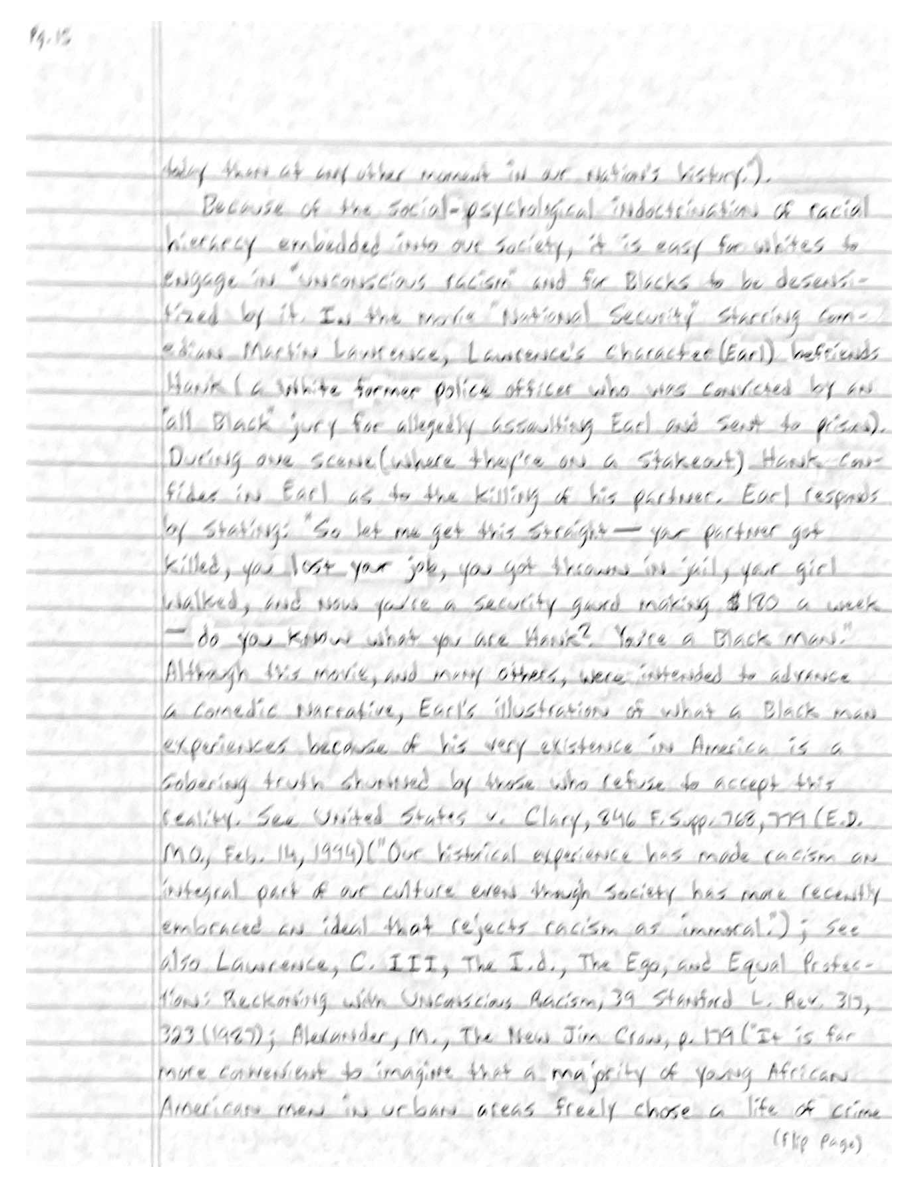 Pg. 15
today than at any other moment in our Nation's history.").
Because of the social-psychological indoctrination of racial
hierarcy embedded into our society, it is easy for whites to
engage in "unconscious racism" and for Blacks to be desensi-
tized by it. In the movie "National Security" starring com-
edian Martin Lawrence, Lawrence's character (Earl) befriends
Hank (a White former police officer who was convicted by an
"all Black" jury for allegedly assaulting Earl and sent to prison).
During one scene (where they're on a stakeout) Hank con-
fides in Earl as to the killing of his partner. Earl responds
by stating: "So let me get this straight — your partner got
killed, you lost your job, you got thrown in jail, your girl
walked, and now you're a security guard making $180 a week
— do you know what you are Hank? You're a Black man."
Although this movie, and many others, were intended to advance
a comedic narrative, Earl's illustration of what a Black man
experiences because of his very existence in America is a
sobering truth shunned by those who refuse to accept this
reality. See United States v. Clary, 846 F. Supp. 768, 779 (E.D.
MO., Feb. 14, 1994) ("Our historical experience has made racism an
integral part of our culture even though society has more recently
embraced an ideal that rejects racism as immoral."); see
also Lawrence, C. III, The I.d., The Ego, and Equal Protec-
tion: Reckoning with Unconscious Racism, 39 Stanford L. Rev. 317,
323 (1987); Alexander, M., The New Jim Crow, p. 179 ("It is far
more convenient to imagine that a majority of young African
American men in urban areas freely chose a life of crime
(flip page)